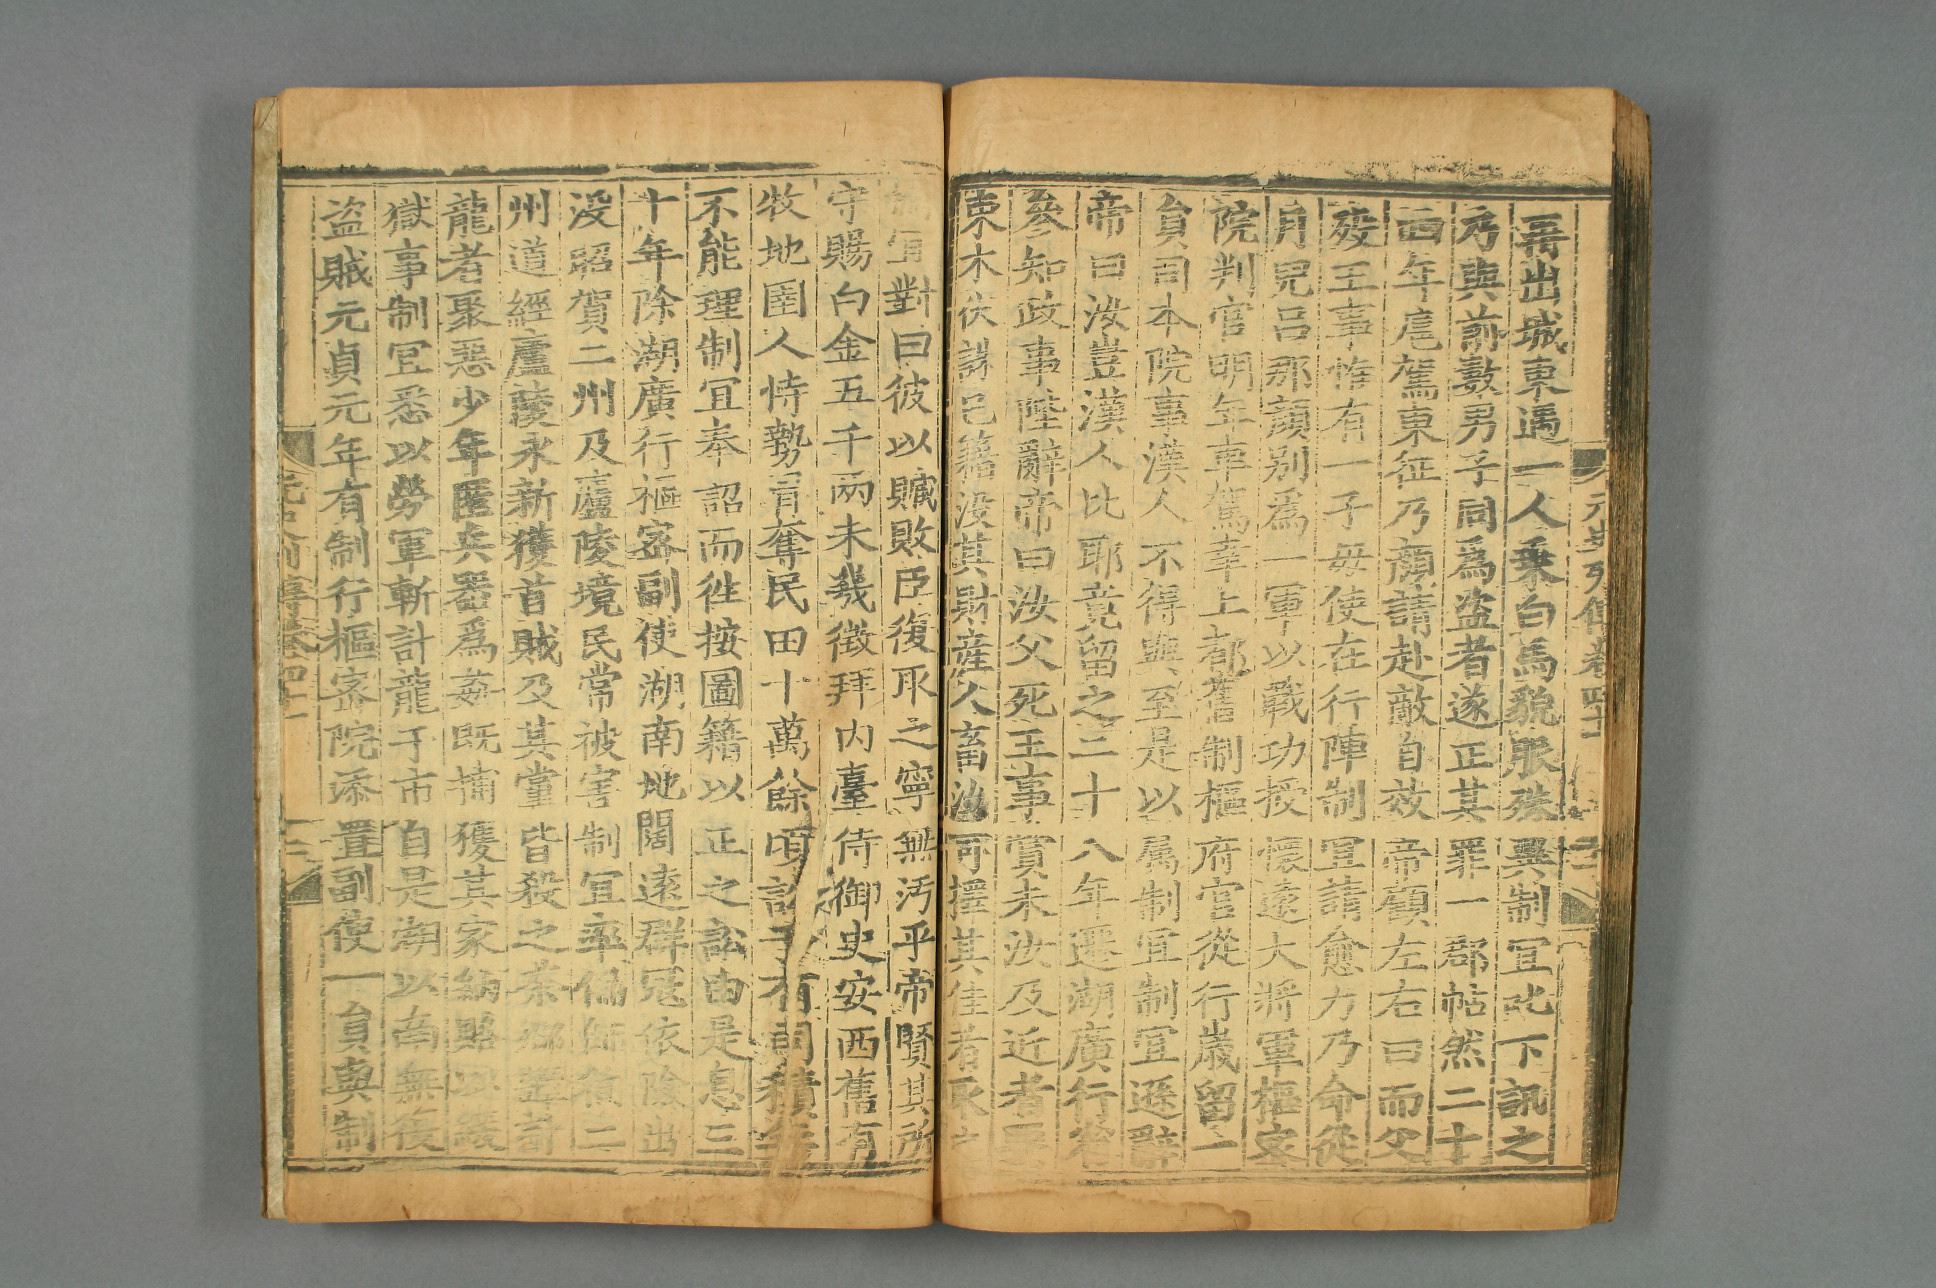 元史列傳卷四十一
再出城東遇一人乘白馬貌服殊異制宜叱下訊之
乃與前數男子同爲盜者遂正其罪一郡帖然二十
四年扈駕東征乃顏請赴敵自效帝顧左右曰而父
歿王事惟有一子毋使在行陣制宜請愈力乃命從
月兒呂那顏别爲一軍以戰功授懷遠大將軍樞密
院判官明年車駕幸上都舊制樞府官從行歲留一
員司本院事漢人不得與至是以屬制宜制宜遜辭
帝曰汝豈漢人比耶竟留之二十八年遷湖廣行省
參知政事陛辭帝曰汝父死王事賞未汝及近者
束木伏誅已籍没其財産人畜汝可擇其佳者取之
制宜對曰彼以贓敗臣復取之寧無汚乎帝賢其所
守賜白金五千兩未幾徵拜内臺侍御史安西舊有
牧地圉人恃勢冒奪民田十萬餘頃訟于有司積年
不能理制宜奉詔而徃按圖籍以正之訟由是息三
十年除湖廣行樞密副使湖南地闊遠群冦依險出
没昭賀二州及廬陵境民常被害制宜率偏師徇二
州道經廬陵永新獲首賊及其黨皆殺之茶鄉譚
龍者聚惡少年匿兵器爲姦既捕獲其家納賂以緩
獄事制宜悉以勞軍斬計龍于市自是湖以南無復
盗賊元貞元年有制行樞密院添置副使一員與制
元史列傳卷四十一